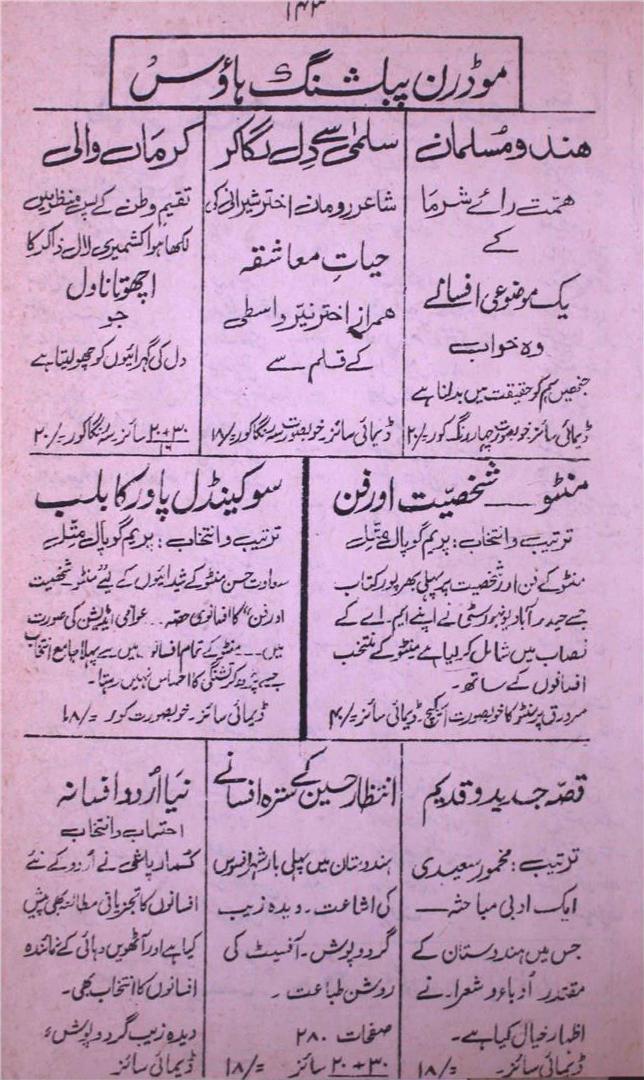 ۱۴۳
موڈرن پبلشنگ ہاؤس
ھندو مُسلمان
ھمّت رائے شرما
کے
یک موضوعی افسانے
وہ خواب
جنھیں ہم کو حقیقت میں بدلنا ہے
ڈیمائی سائز۔ خوبصورت چہار رنگ کور =/۲۰
سلمیٰ سے دِل لگا کر
شاعرِ رومان اختر شیرانی کی
حیاتِ معاشقہ
ھمراز اختر نیّر واسطی
کے قلم سے
ڈیمائی سائز۔ خوبصورت سہ رنگا کور =/۱۸
کرماں والی
تقیم وطن کے پس منظر میں
لکھا ہوا کشمیری لال ذاکر کا
اچھوتا ناول
جو
دل کی گہرائیوں کو چھو لیتا ہے
۲۰+۳۰ سائز۔ سہ رنگا کور =/۲۰
۱۶
منٹو ــــ شخصیّت اور فن
ترتیب و انتخاب: پریم گوپال متّل
منٹو کے فن اور شخصیت پر پہلی بھرپور کتاب
جسے حیدر آباد یونیورسٹی نے اپنے ایم۔ اے کے
نصاب میں شامل کر لیا ہے منٹو کے منتخب
افسانوں کے ساتھ۔
سرورق پر منٹو کا خوبصورت اسکیچ۔ ڈیمائی سائز =/۴۰
سو کینڈل پاور کا بلب
ترتیب و انتخاب: پریم گوپال متّل
سعادت حسن منٹو کے شیدائیوں کے لیے منٹو شخصیت
اور فن" کا افسانوی حصّہ... عوامی ایڈیشن کی صورت
میں... منٹو کے تمام افسانوں میں سے پہلا جامع انتخاب
جسے پڑھ کر تشنگی کا احساس نہیں رہتا۔
ڈیمائی سائز۔ خوبصورت کور =/۱۸
قصّہ جدید و قدیم
ترتیب: مخمور سعیدی
ایک ادبی مباحثہ ــــ
جس میں ہندوستان کے
مقتدر اُدباء و شعراء نے
اظہار خیال کیا ہے۔
ڈیمائی سائز۔ =/۱۸
انتظار حسین کے سترہ افسانے
ہندوستان میں پہلی بار شہر افسوس
کی اشاعت۔ دیدہ زیب
گرد و پوش۔ آفسیٹ کی
روشن طباعت۔
صفحات ۲۸۰
۲۰+۳۰ سائز =/۱۸
نیا اُردو افسانہ
احتساب و انتخاب
کمار پاشی نے اُردو کے نئے
افسانوں کا تجزیاتی مطالعہ بھی پیش
کیا ہے اور آٹھویں دہائی کے نمائندہ
افسانوں کا انتخاب بھی۔
دیدہ زیب گرد و پوش،
ڈیمائی سائز